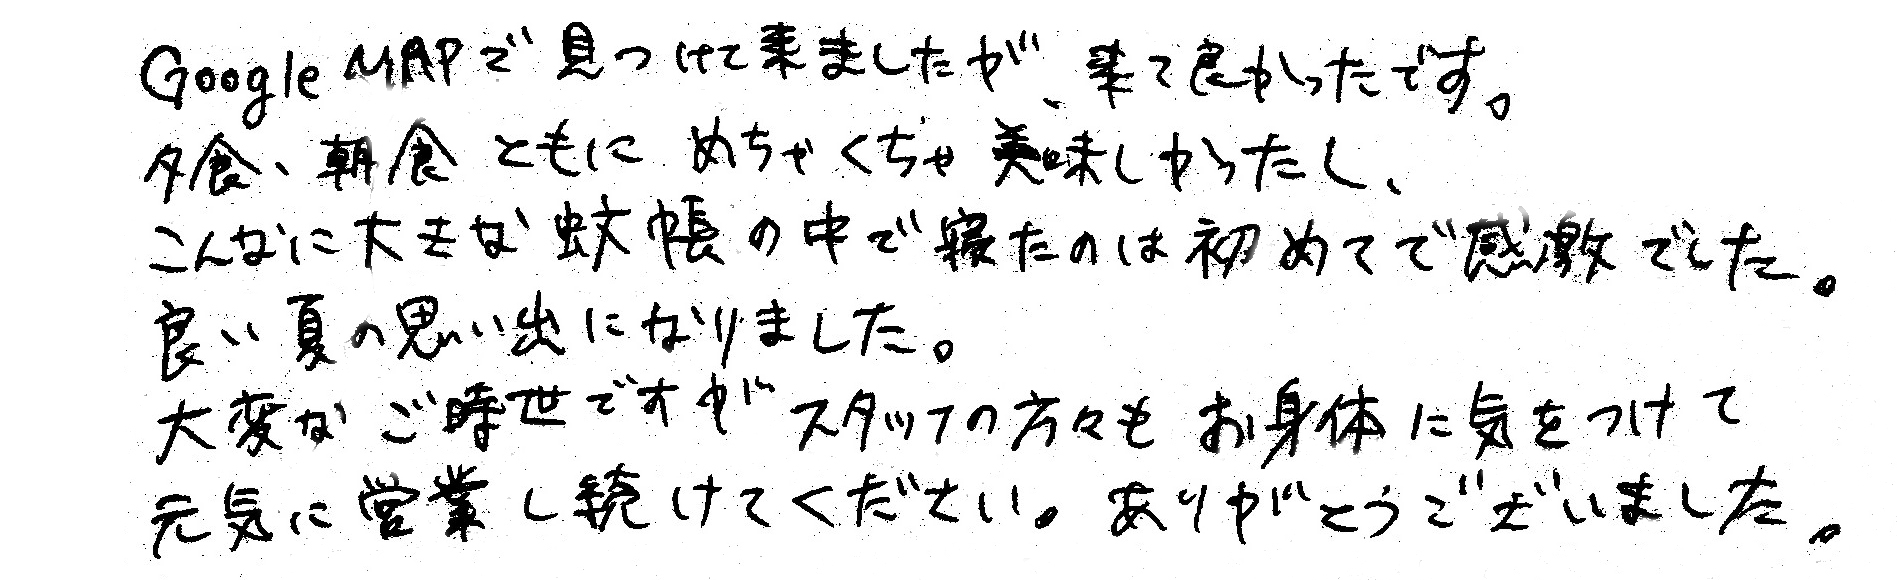 Google MAPで見つけて来ましたが、来て良かったです。
夕食、朝食ともにめちゃくちゃ美味しかったし、
こんなに大きな蚊帳の中で寝たのは初めてで感激でした。
良い夏の思い出になりました。
大変なご時世ですがスタッフの方々もお身体に気をつけて
元気に営業し続けてください。ありがとうございました。